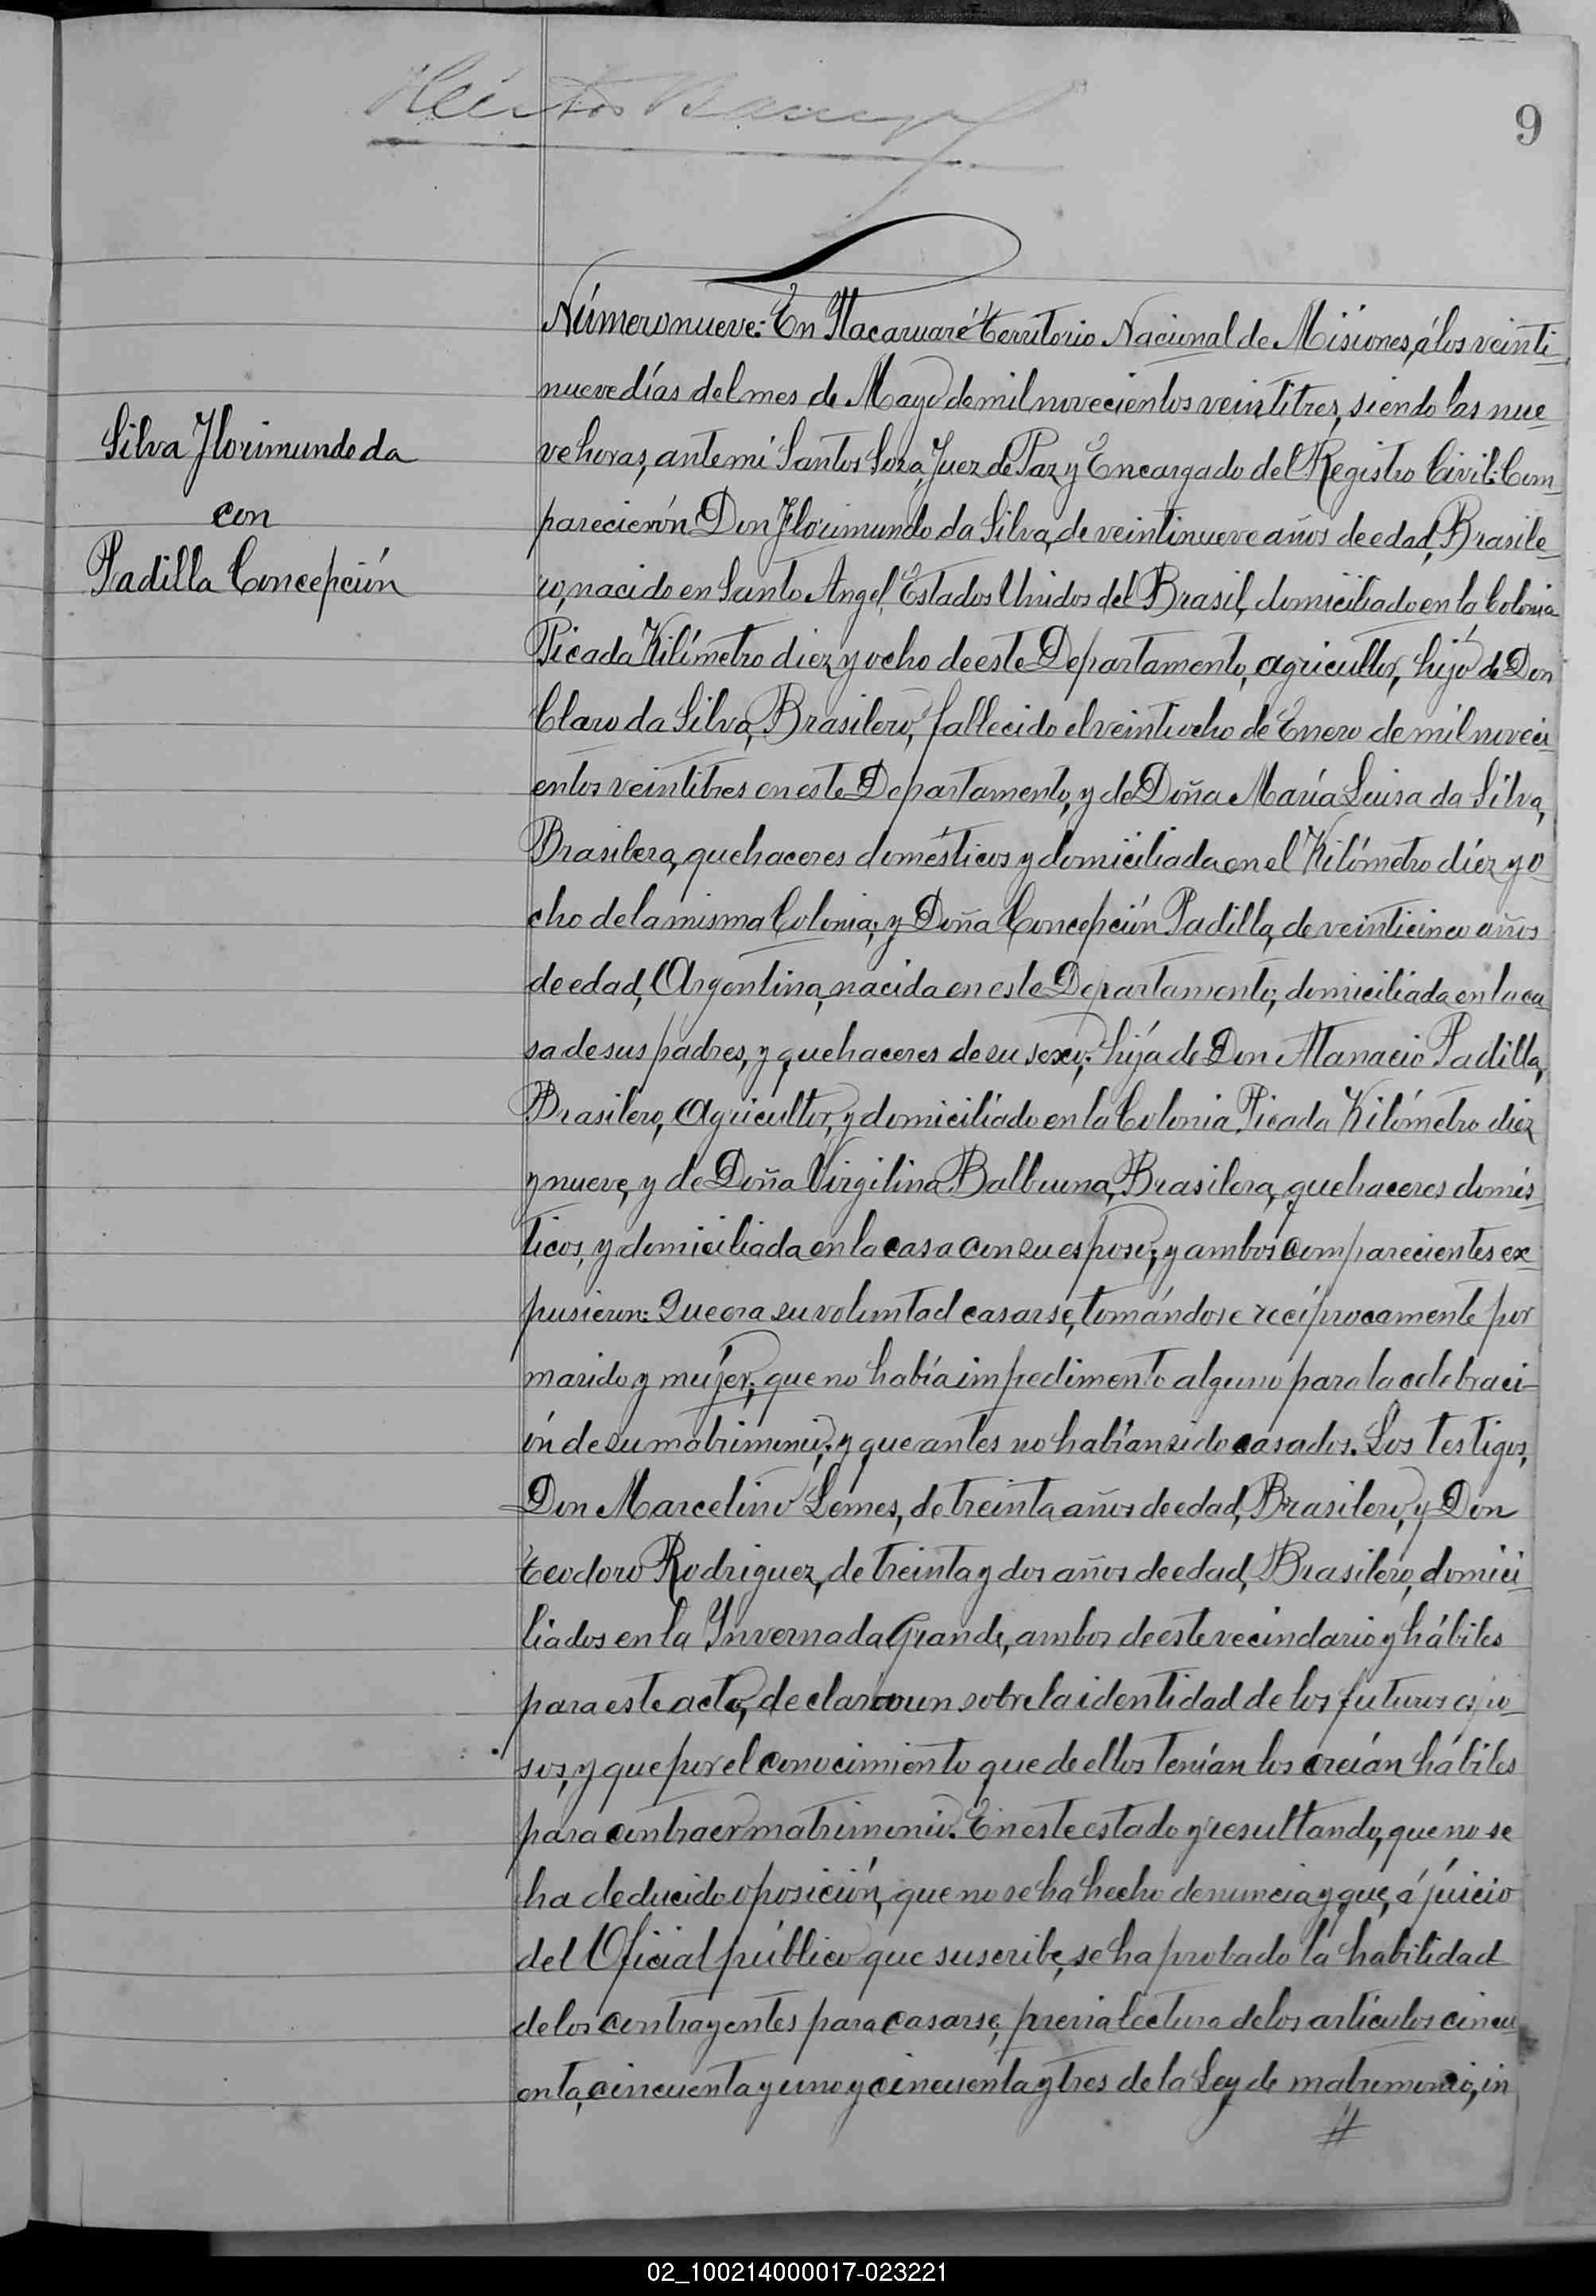 9
Silva Florimundo da
con
Padilla Concepción
Número nueve: En Itacaruaré Territorio Nacional de Misiones, á los veinti
nueve días del mes de Mayo de mil novecientos veintitres, siendo las nue
ve horas, ante mi Santos Sosa, Juez de Paz y Encargado del Registro Civil: Com
parecierón Don Florimundo da Silva, de veintinueve años de edad, Brasile
ro, nacido en Santo Angel, Estados Unidos del Brasil, domiciliado en la Colonia
Picada Kilómetro diez y ocho de este Departamento, agricultor, hijo de Don
Claro da Silva, Brasilero, fallecido el veintiocho de Enero de mil noveci
entos veintitres en este Departamento, y de Doña María Luisa da Silva,
Brasilera, quehaceres domésticos y domiciliada en el Kilómetro diez y o
cho de la misma Colonia; y Doña Concepción Padilla, de veinticinco años
de edad, Argentina, nacida en este Departamento; domiciliada en la ca
sa de sus padres, y quehaceres de su sexo; hija de Don Atanacio Padilla,
Brasilero, Agricultor, y domiciliado en la Colonia Picada Kilómetro diez
y nueve, y de Doña Virgilina Balbuena, Brasilera, quehaceres domés
ticos, y domiciliada en la casa con su esposo; y ambos comparecientes ex
pusieron: Que era su voluntad casarse, tomándose recíprocamente por
marido y mujer; que no había impedimento alguno para la celebraci
ón de su matrimonio; y que antes no habían sido casados. Los testigos,
Don Marcelino Lemes, de treinta años de edad, Brasilero, y Don
Teodoro Rodriguez, de treinta y dos años de edad, Brasilero, domici
liados en la Invernada Grande, ambos de este vecindario y hábiles
para este acto, declararon sobre la identidad de los futuros espo
sos, y que por el conocimiento que de ellos tenían los creían hábiles
para contraer matrimonio. En este estado y resultando, que no se
ha deducido oposición, que no se ha hecho denuncia y que, á juicio
del Oficial público que suscribe, se ha probado la habilidad
de los contrayentes para casarse, previa lectura de los artículos cincu
enta, cincuenta y uno y cincuenta y tres de la Ley de matrimonio, in
#
02_100214000017-023221